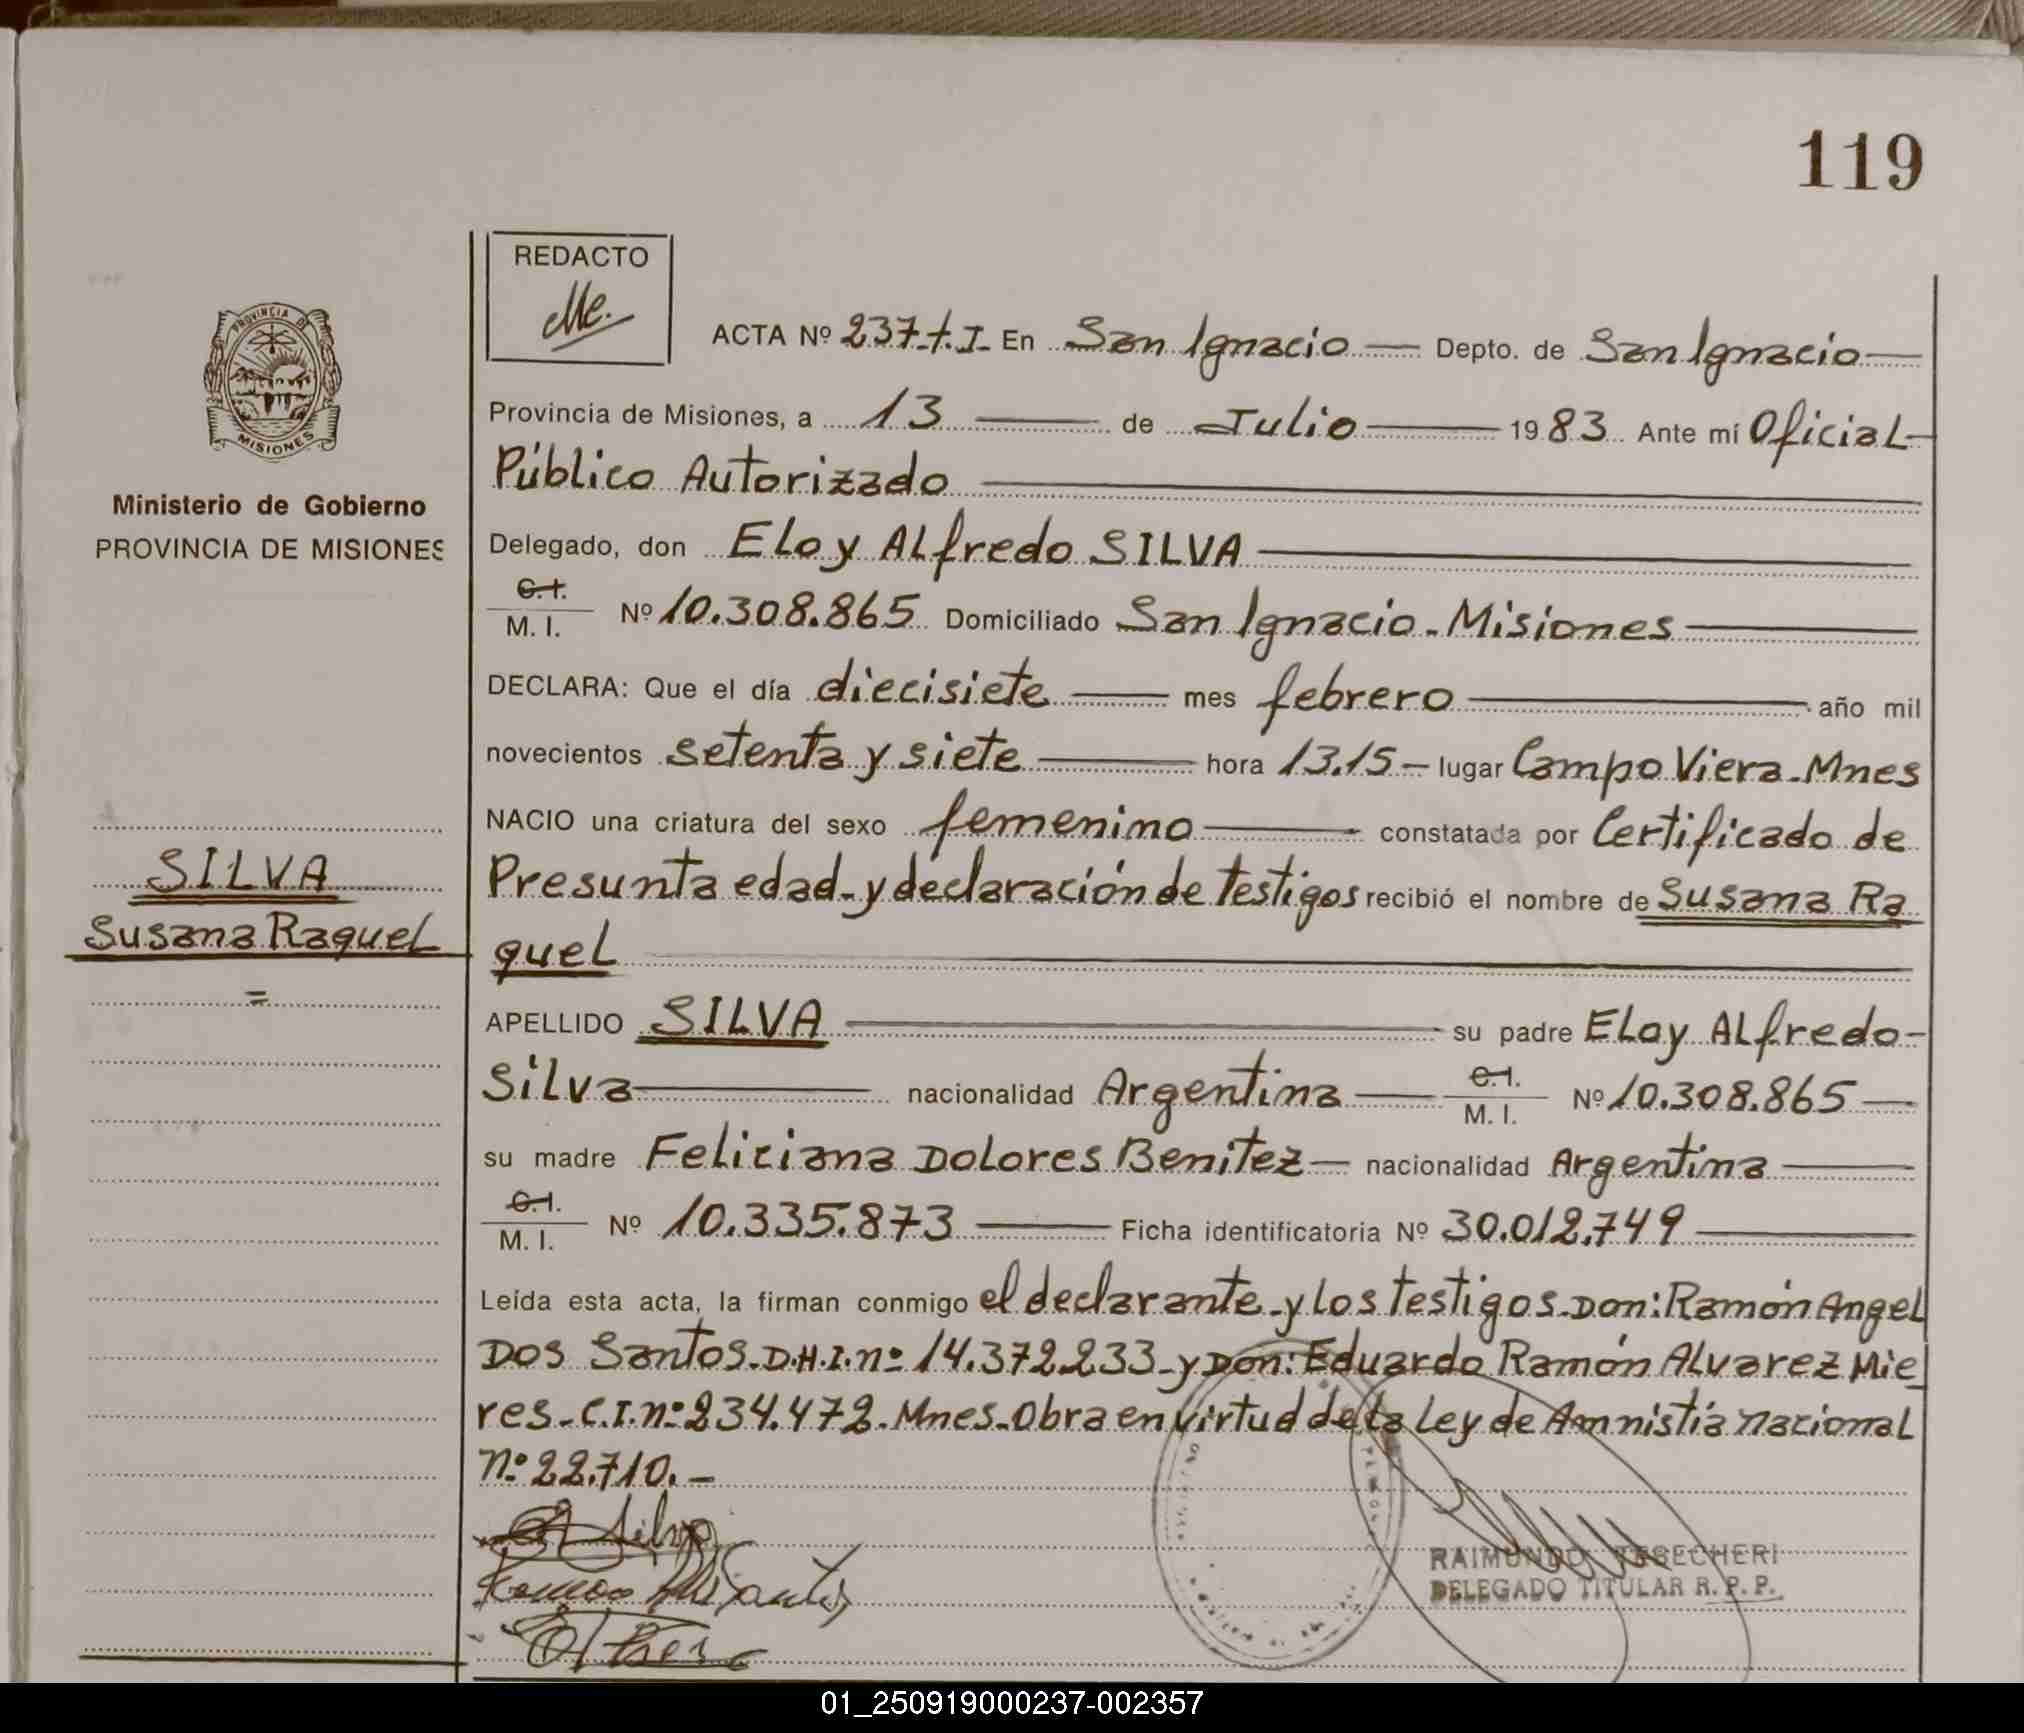 119
REDACTO
Me.
PROVINCIA DE
MISIONES
Ministerio de Gobierno
PROVINCIA DE MISIONES
SILVA
Susana Raquel
=
ACTA Nº 237-t.I- En San Ignacio — Depto. de San Ignacio —
Provincia de Misiones, a 13 — de Julio — 1983 Ante mí Oficial
Público Autorizado
Delegado, don Eloy Alfredo SILVA
C.I. M. I. Nº 10.308.865 Domiciliado San Ignacio - Misiones
DECLARA: Que el día diecisiete — mes febrero — año mil
novecientos setenta y siete — hora 13.15 — lugar Campo Viera - Mnes
NACIO una criatura del sexo femenino — constatada por Certificado de
Presunta edad - y declaración de Testigos recibió el nombre de Susana Ra
quel
APELLIDO SILVA — su padre Eloy Alfredo -
Silva — nacionalidad Argentina — C.I. M. I. Nº 10.308.865 —
su madre Feliciana Dolores Benitez — nacionalidad Argentina —
C.I. M. I. Nº 10.335.873 — Ficha identificatoria Nº 30.012.749 —
Leída esta acta, la firman conmigo el declarante - y los testigos - Don: Ramón Angel
Dos Santos - D.N.I. nº 14.372.233 - y Don: Eduardo Ramón Alvarez Mie
res - C.I. nº 234.472 - Mnes - Obra en virtud de la Ley de Amnistía nacional
nº 22.710. -
Silva
RAIMUNDO TESECHERI
DELEGADO TITULAR R. P. P.
01_250919000237-002357